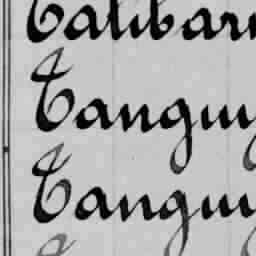 Talibart
Tanguy
Tanguy